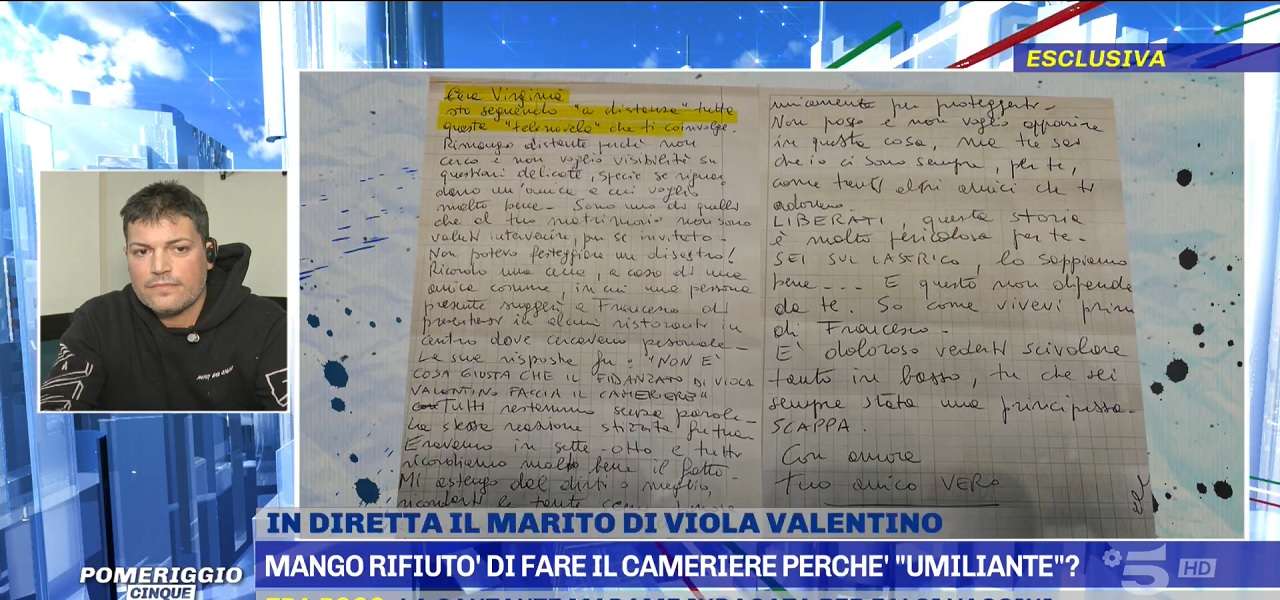 ESCLUSIVA
Cara Virginia
sto seguendo "a distanza" tutta
questa "telenovela" che ti coinvolge.
Rimango distante perché non
cerco e non voglio visibilità su
questioni delicate, specie se riguar
dano un'amica a cui voglio
molto bene - Sono uno di quelli
che al tuo matrimonio non sono
voluti intervenire, pur se invitato -
Non potevo festeggiare un disastro!
Ricordo una cena, a casa di una
amica comune, in cui una persona
presente suggerì a Francesco di
presentarsi in alcuni ristoranti in
centro dove cercavano personale -
La sua risposta fu: "NON È
COSA GIUSTA CHE IL FIDANZATO DI VIOLA
VALENTINO FACCIA IL CAMERIERE"
TUTTI restammo senza parole -
La stessa reazione stizzita fu tua.
Eravamo in sette-otto e tutti
ricordiamo molto bene il fatto -
Mi astengo dal dirti o meglio,
ricordarti le tante
unicamente per proteggerti -
Non posso e non voglio apparire
in questa cosa, ma tu sai
che io ci sono sempre, per te,
come tanti altri amici che ti
adorano.
LIBERATI, questa storia
è molto pericolosa per te -
SEI SUL LASTRICO, lo sappiamo
bene - - - E questo non dipende
da te. So come vivevi prima
di Francesco -
E' doloroso vederti scivolare
tanto in basso, tu che sei
sempre stata una principessa -
SCAPPA.
Con amore
Tuo amico VERO
IN DIRETTA IL MARITO DI VIOLA VALENTINO
MANGO RIFIUTO' DI FARE IL CAMERIERE PERCHE' "UMILIANTE"?
POMERIGGIO
CINQUE
5 HD